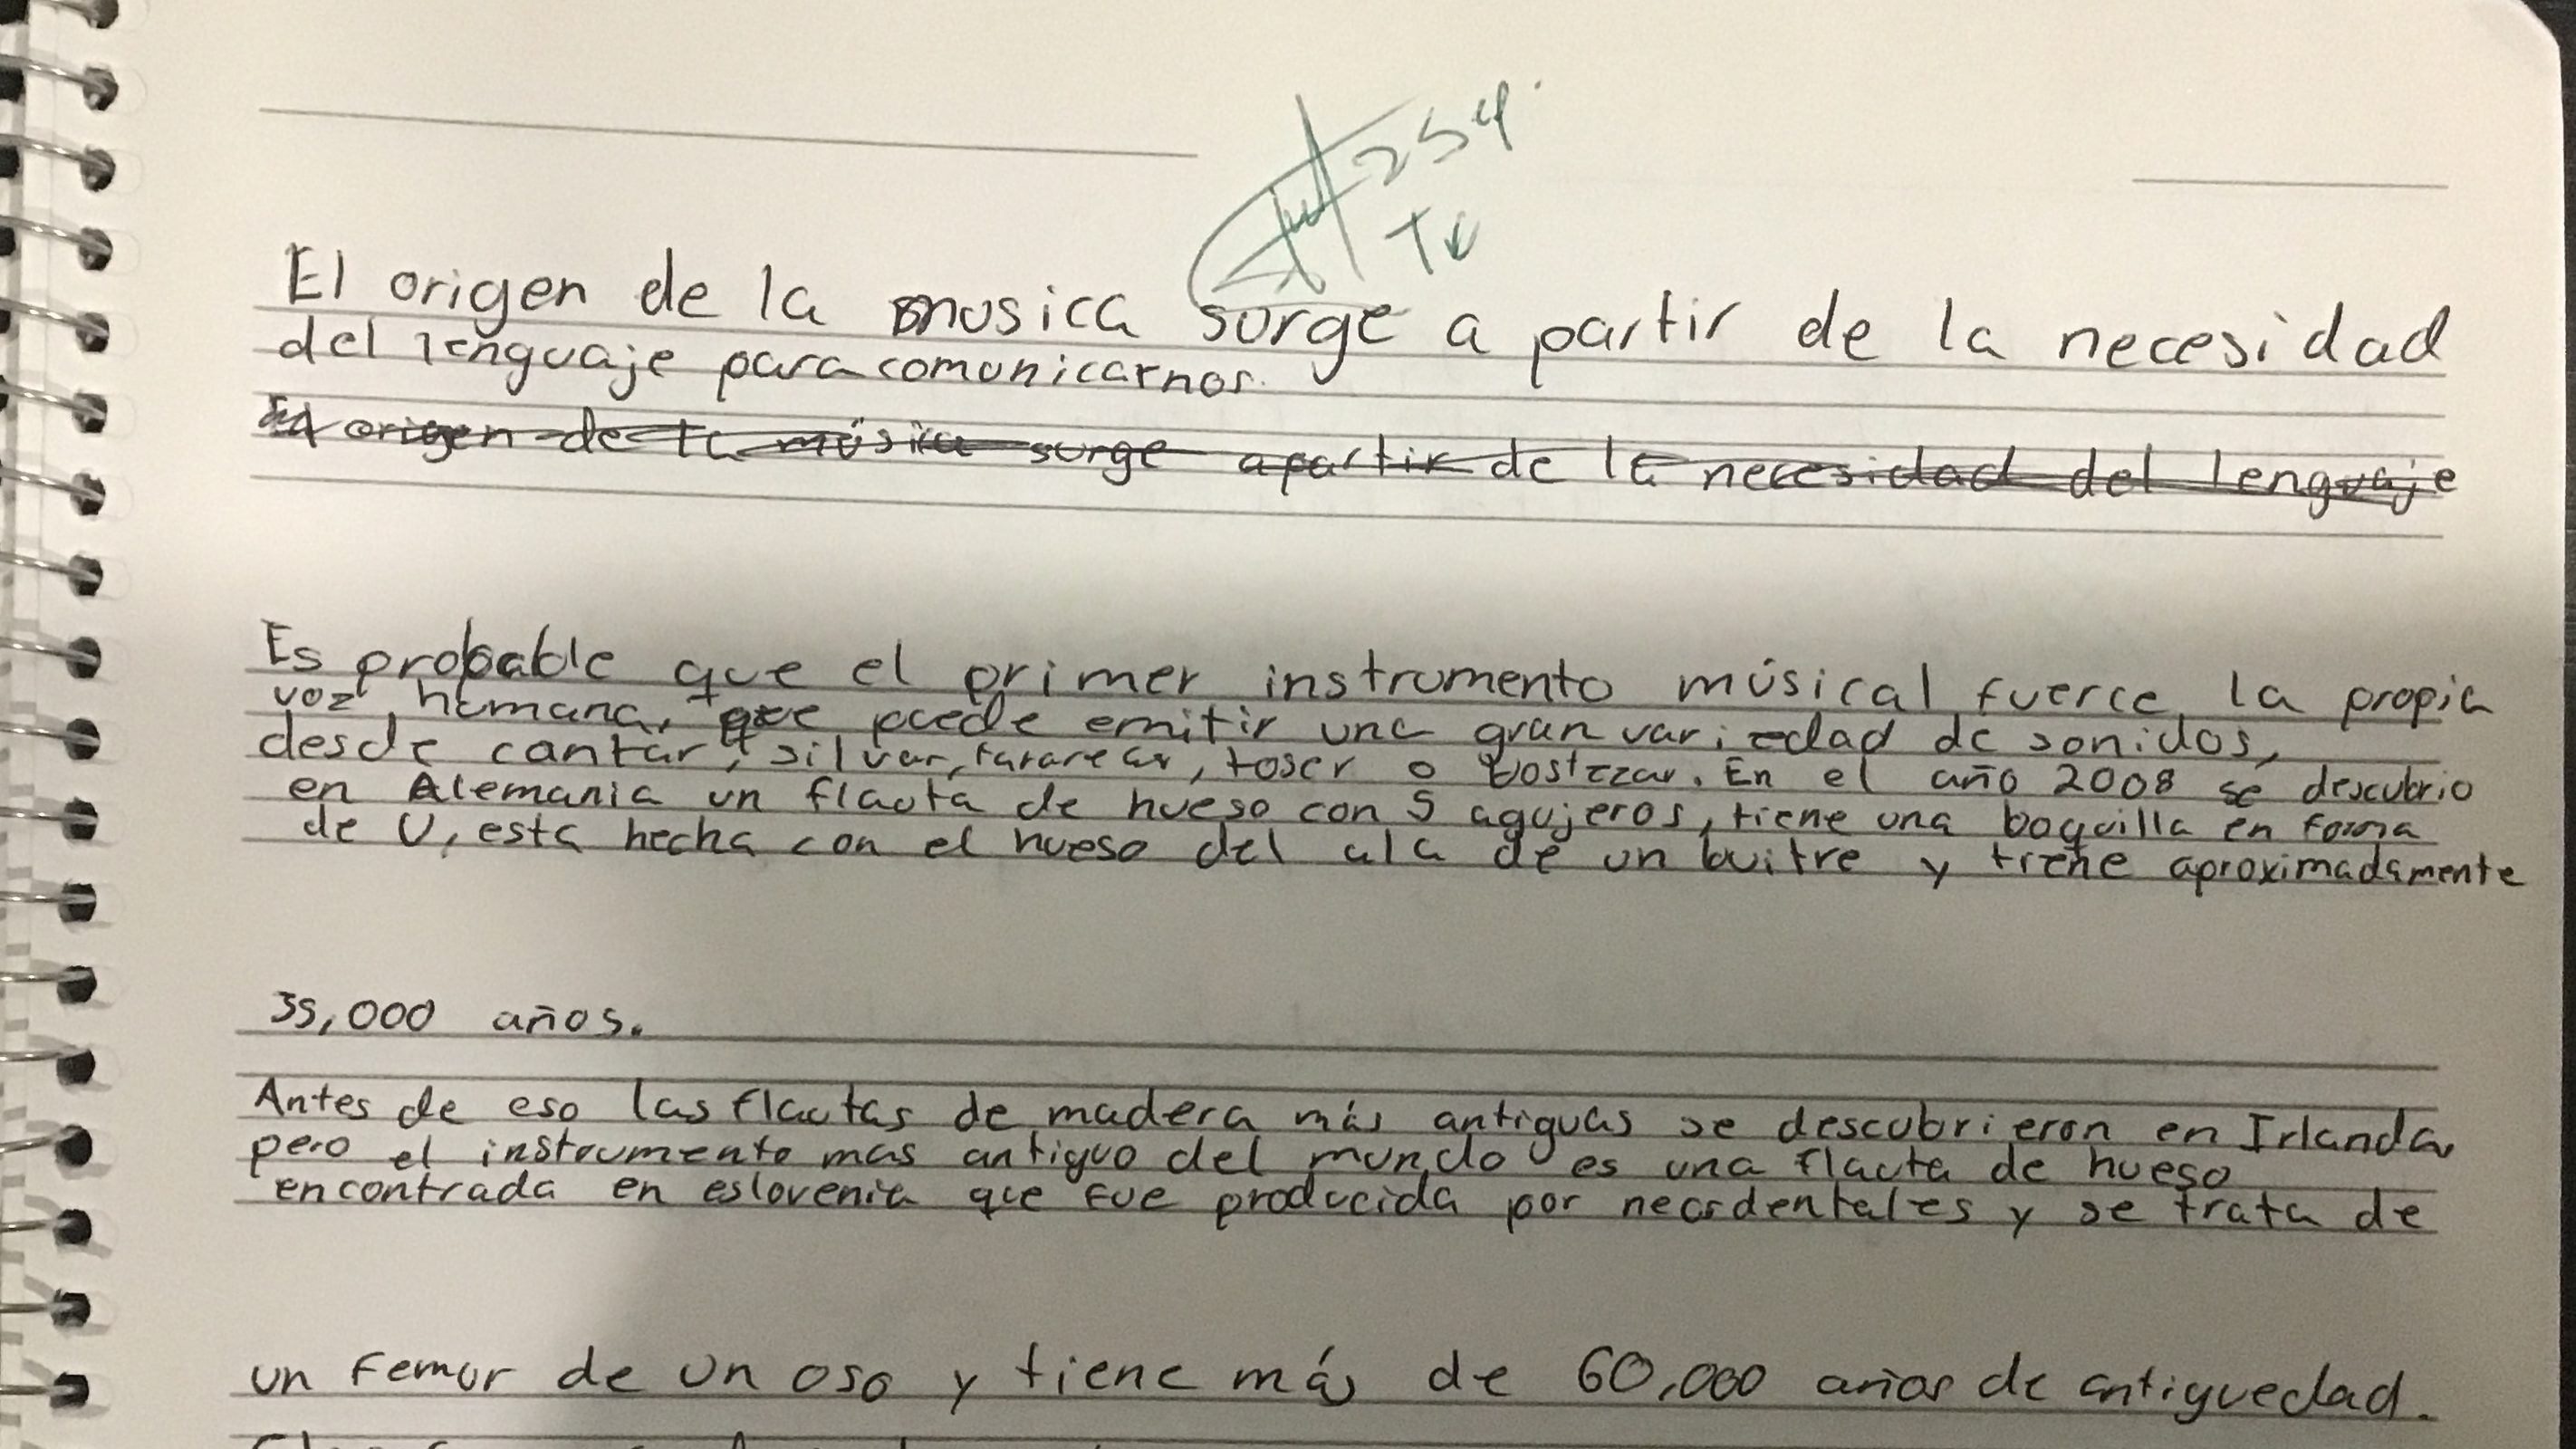 254
El origen de la musica surge a partir de la necesidad
del lenguaje para comunicarnos.
El origen de la música surge apartir de la necesidad del lenguaje
Es probable que el primer instrumento músical fuerce la propia
voz humana, que puede emitir una gran variedad de sonidos,
desde cantar, silvar, tararear, toser o bostezar. En el año 2008 se descubrio
en Alemania un flauta de hueso con 5 agujeros, tiene una boquilla en forma
de U, esta hecha con el hueso del ala de un buitre y tiene aproximadamente
35,000 años.
Antes de eso las flautas de madera más antiguas se descubrieron en Irlanda,
pero el instrumento mas antiguo del mundo es una flauta de hueso
encontrada en eslovenia que fue producida por neardentales y se trata de
un femur de un oso y tiene más de 60,000 años de antiguedad.